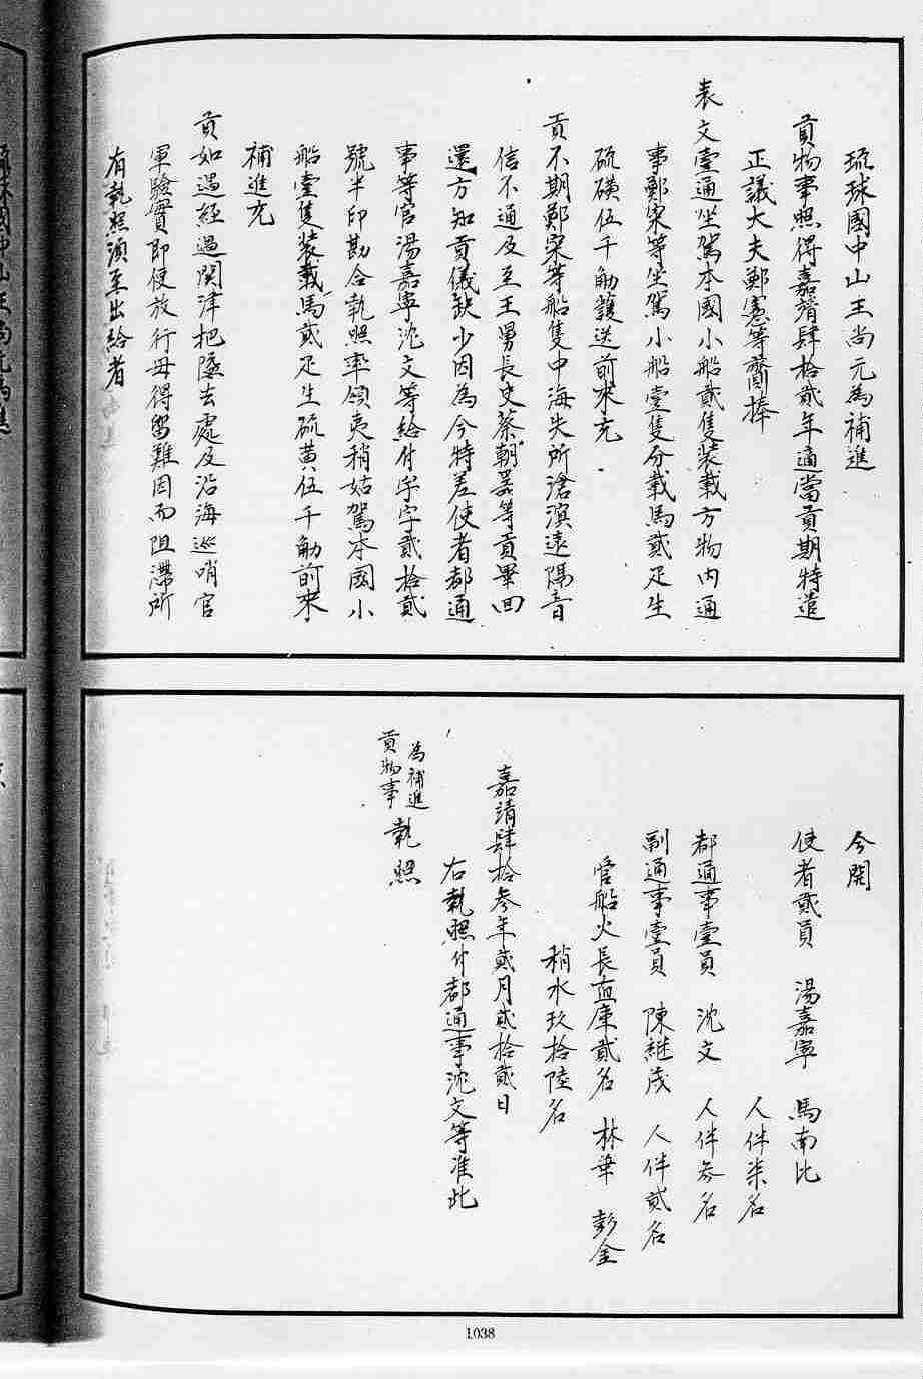 琉球國中山王尚元為補進
貢物事照得嘉靖肆拾貳年適當貢期特遣
正議大夫鄭憲等齎捧
表文壹通坐駕本國小船貳隻裝載方物內通
事鄭宋等坐駕小船壹隻分載馬貳疋生
硫磺伍千觔護送前來充
貢不期鄭宋等船隻中海失所滄溟遠隔音
信不通及至王舅長史蔡朝器等貢畢回
還方知貢儀缺少因為今特差使者都通
事等官湯嘉寧沈文等給付字貳拾貳
號半印勘合執照率領夷稍姑駕本國小
船壹隻裝載馬貳疋生硫黄伍千觔前來
補進充
貢如遇經過関津把隘去處及沿海巡哨官
軍驗實即便放行毋得留難因而阻滯所
有執照須至出給者
今開
使者貳員 湯嘉寧 馬南比
人伴柒名
都通事壹員 沈文 人伴叁名
副通事壹員 陳継茂 人伴貳名
管船火長直庫貳名 林華 彭金
稍水玖拾陸名
嘉靖肆拾叁年貳月貳拾貳日
右執照付都通事沈文等准此
為補進
貢物事 執照
1038